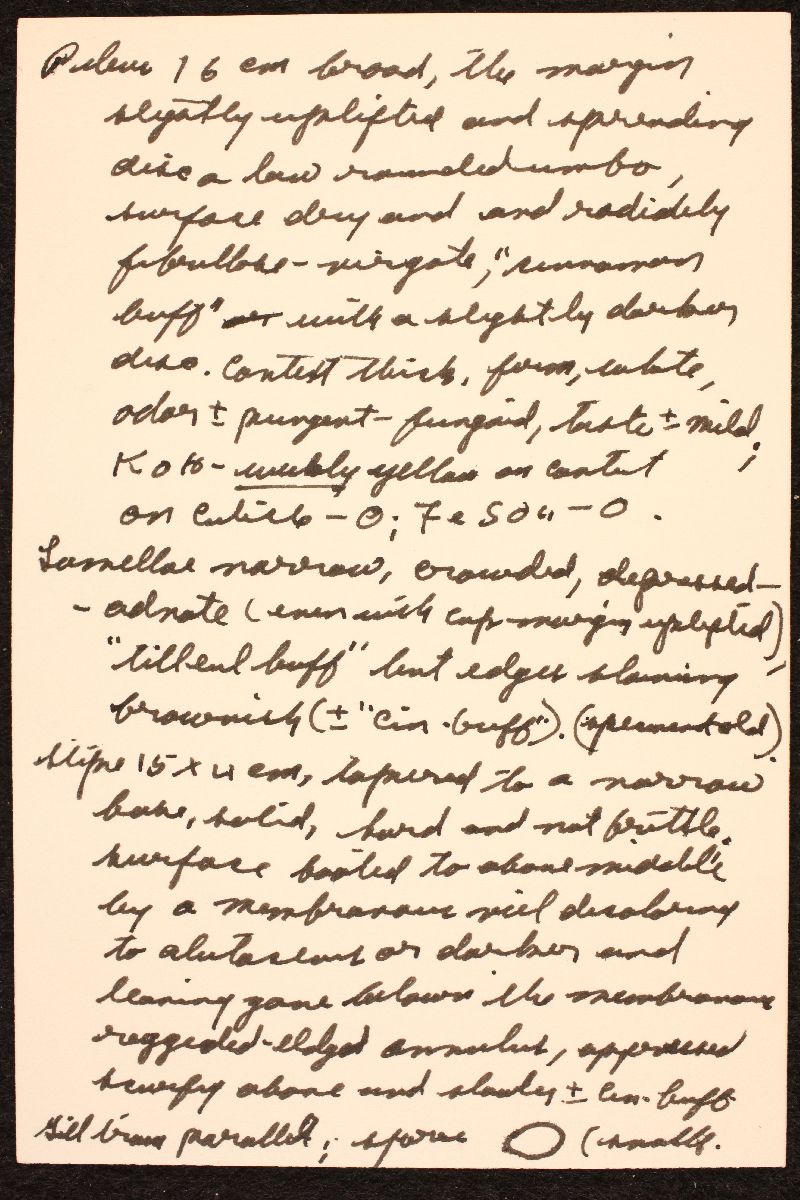 Pileus 16 cm broad, the margin
slightly uplifted and spreading
disc a low rounded umbo,
surface dry and and radially
fibrillose-virgate, "cinnamon
buff" with a slightly darker
disc. Context thick, firm, white,
odor ± pungent-fungoid, taste ± mild;
KOH - weakly yellow on context
on cuticle - O; FeSO4 - O.
Lamellae narrow, crowded, depressed-
- adnate (even with cap-margin uplifted),
"tilleul buff" but edges staining
brownish (± "cin-buff"). (specimens old).
Stipe 15 x 4 cm, tapered to a narrow
base, solid, hard and not brittle,
surface booted to above middle
by a membranous veil discoloring
to alutaceous or darker and
leaving zone below the membranous
ragged-edged annulus, appressed
scurfy above and slowly ± cin-buff
Gill tram parallel; spores (small.